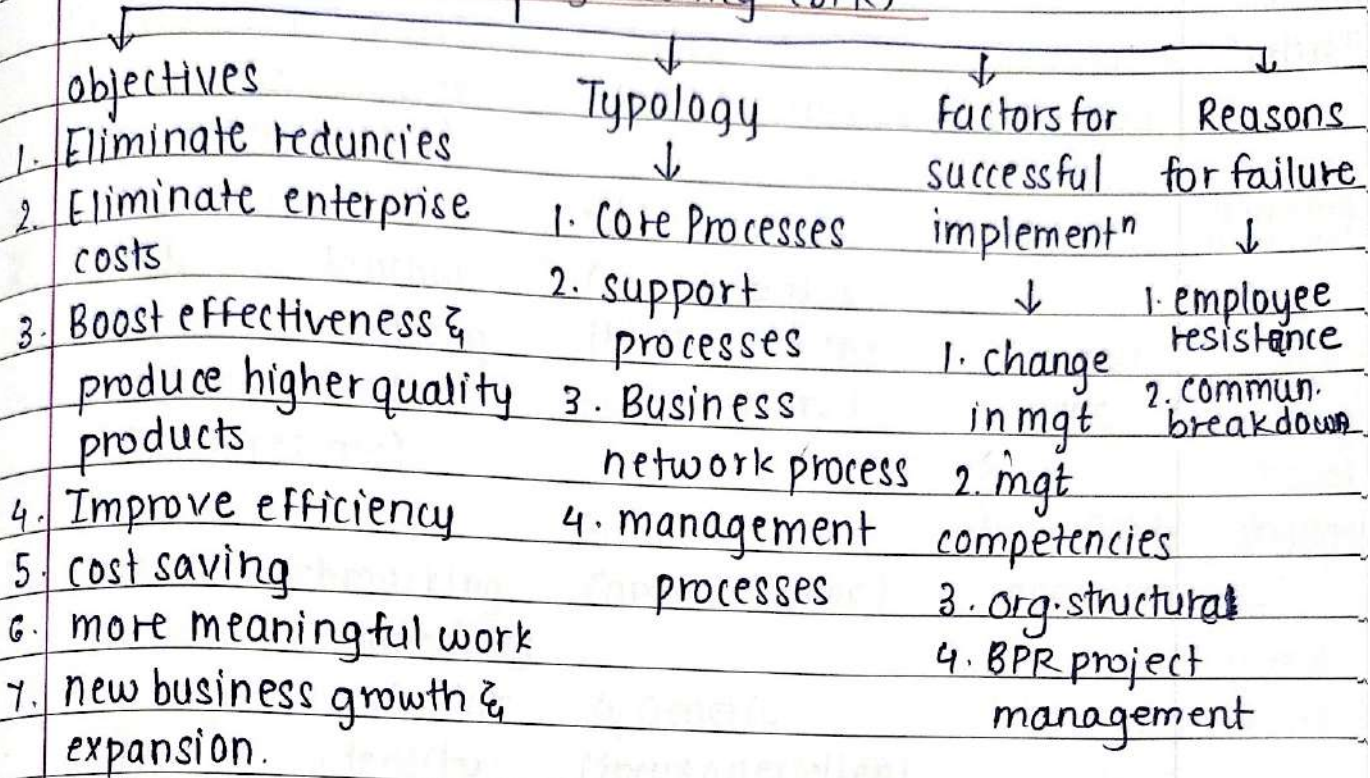 objectives
1. Eliminate reduncies
2. Eliminate enterprise
costs
3. Boost effectiveness &
produce higher quality
products
4. Improve efficiency
5. cost saving
6. more meaningful work
7. new business growth &
expansion.
Typology
1. Core Processes
2. support
processes
3. Business
network process
4. management
processes
Factors for
successful
implementⁿ
1. change
in mgt
2. mgt
competencies
3. org. structural
4. BPR project
management
Reasons
for failure
1. employee
resistance
2. commun.
breakdown